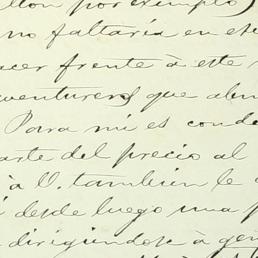 lton por ejemplo)
no faltaría en ese
acer frente à este
aventurero) que
Para mi es cond
arte del precio al
à V. tambien le
desde luego una p
dirigiendose à gen